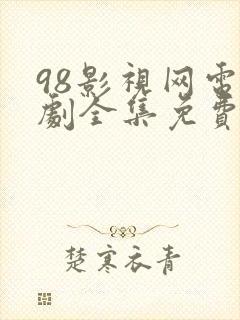 98影視网电
劇全集免費
楚寒衣青